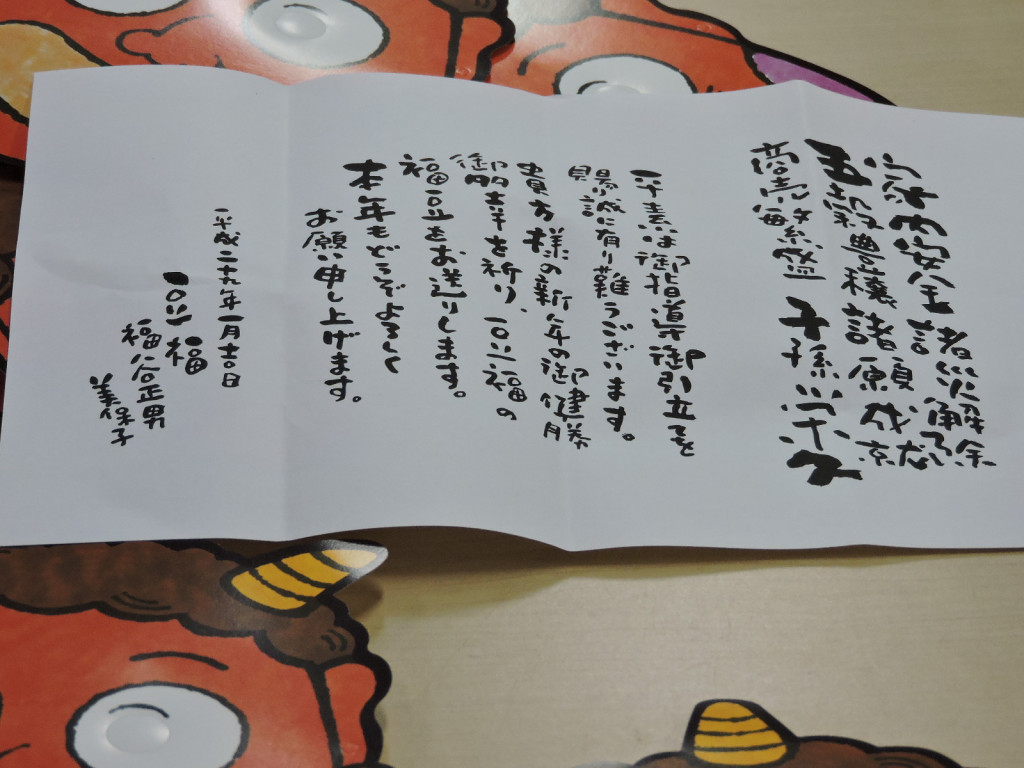 家内安全 諸災解除
五穀豊穣 諸願成就
商売繁盛 子孫栄久
平素は御指導御引立てを
賜誠に有り難うございます。
貴方様の新年の御健勝
御多幸を祈り、豆福の
福豆をお送りします。
本年もどうぞよろしく
お願申し上げます。
平成二十九年一月吉日
豆福
福谷正男
美保子